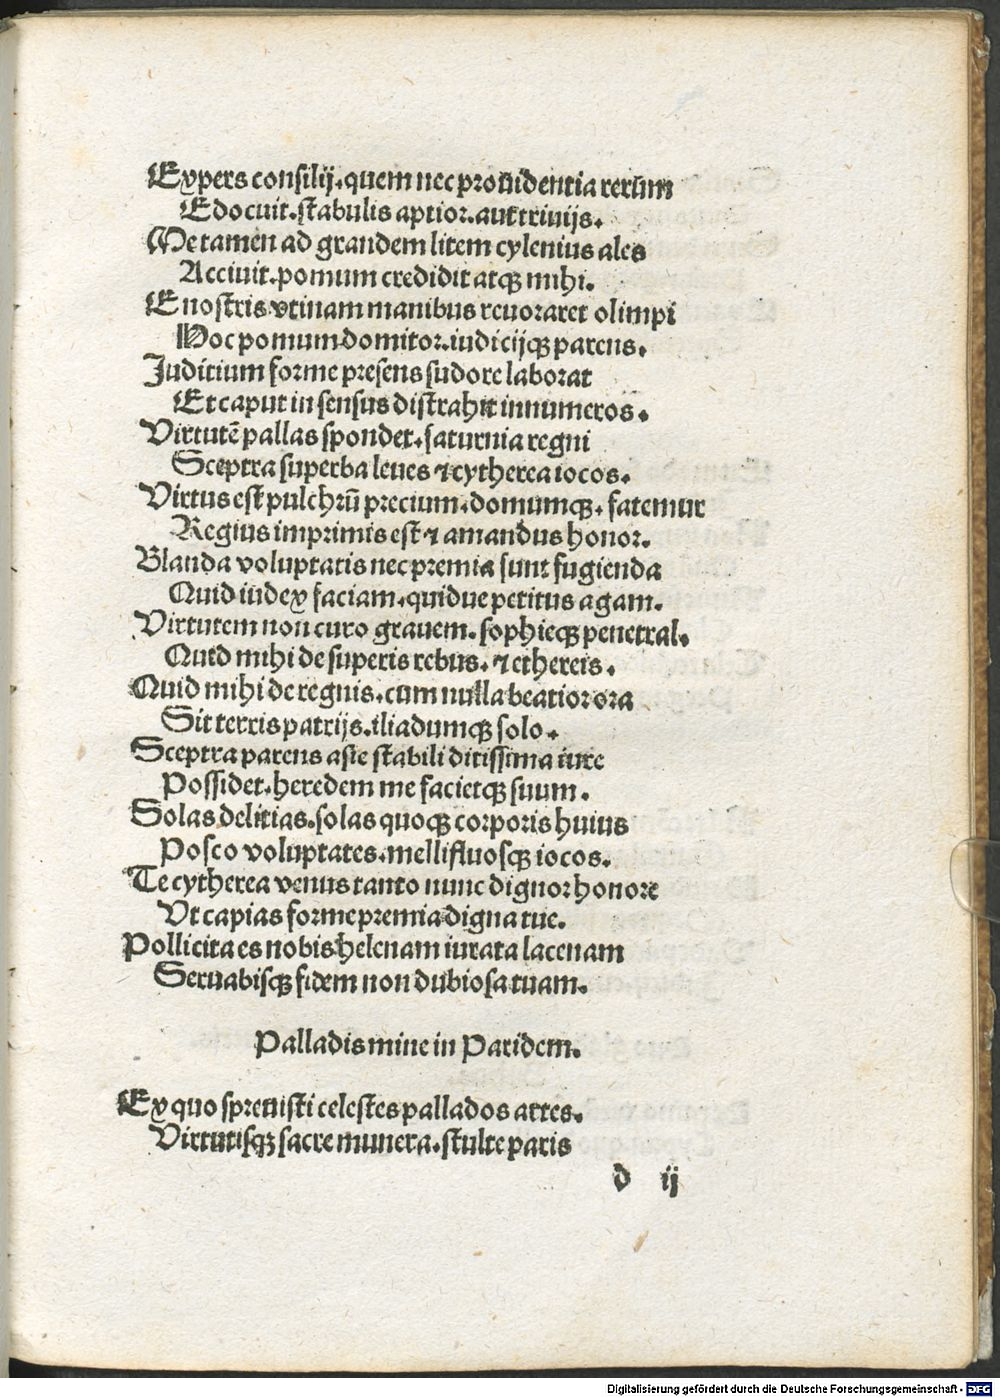 Expers consilij. quem nec prouidentia rerum
Edocuit. stabulis aptior. aut triuijs.
Me tamen ad grandem litem cylenius ales
Acciuit. pomum credidit atqꝫ mihi.
E nostris vtinam manibus reuoraret olimpi
Hoc pomum domitor. iudicijqꝫ parens.
Juditium forme presens sudore laborat
Et caput in sensus distrahit innumeros.
Virtutē pallas spondet. saturnia regni
Sceptra superba leues ⁊ cytherea iocos.
Virtus est pulchrū precium. domumqꝫ. fatemur
Regius imprimis est ⁊ amandus honor.
Blanda voluptatis nec premia sunt fugienda
Quid iudex faciam. quidue petitus agam.
Virtutem non curo grauem. sophieqꝫ penetral.
Quid mihi de superis rebus. ⁊ ethereis.
Quid mihi de regnis. cum nulla beatior ora
Sit terris patrijs. iliadumqꝫ solo.
Sceptra parens asie stabili ditissima iure
Possidet. heredem me facietqꝫ suum.
Solas delitias. solas quoqꝫ corporis huius
Posco voluptates. mellifluosqꝫ iocos.
Te cytherea venus tanto nunc dignor honore
Vt capias forme premia digna tue.
Pollicita es nobis helenam iurata lacenam
Seruabisqꝫ fidem non dubiosa tuam.
Palladis mine in Paridem.
Ex quo spreuisti celestes pallados artes.
Virtutisqꝫ sacre munera. stulte paris
d ij
Digitalisierung gefördert durch die Deutsche Forschungsgemeinschaft - DFG